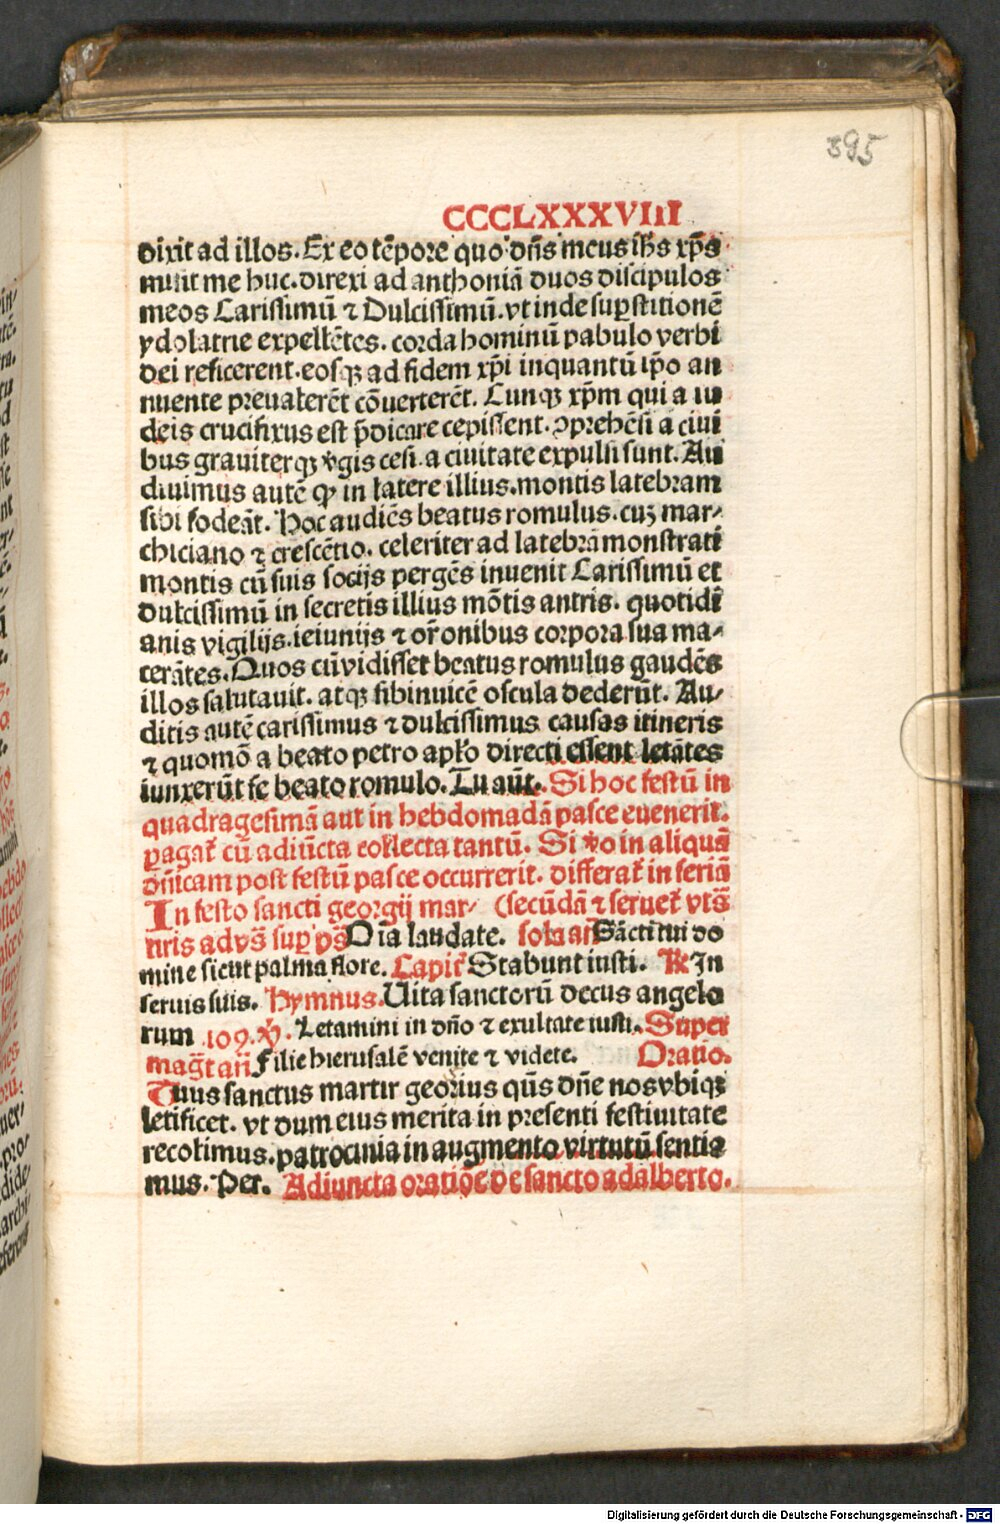 395
CCCLXXXVIIII
dixit ad illos. Ex eo tēpore quo dn̄s meus ih̄s xp̄s
misit me huc. direxi ad anthoniā duos discipulos
meos Carissimū ⁊ Dulcissimū. vt inde suꝑstitionē
ydolatrie expellētes. corda hominū pabulo verbi
dei reficerent. eosqꝫ ad fidem xp̄i inquantū ip̄o an
nuente preualerēt cōuerterēt. Cunqꝫ xp̄m qui a iu
deis crucifixus est p̄dicare cepissent. ꝯprehēsi a ciui
bus grauiterqꝫ v̄gis cesi. a ciuitate expulsi sunt. Au
diuimus autē ꝙ in latere illius. montis latebram
sibi fodeāt. Hoc audiēs beatus romulus. cuꝫ mar-
chiciano ⁊ crescētio. celeriter ad latebrā monstrati
montis cū suis socijs pergēs inuenit Carissimū et
dulcissimū in secretis illius mōtis antris. quotidi
anis vigilijs. ieiunijs ⁊ or̄onibus corpora sua ma-
cerātes. Quos cū vidisset beatus romulus gaudēs
illos salutauit. atqꝫ sibinuicē oscula dederūt. Au-
ditis autē carissimus ⁊ dulcissimus causas itineris
⁊ quomō a beato petro apl̄o directi essent letātes
iunxerūt se beato romulo. Tu aūt. Si hoc festū in
quadragesimā aut in hebdomadā pasce euenerit.
ꝑagat̄ cū adiūcta collecta tantū. Si v̄o in aliquā
dn̄icam post festū pasce occurrerit. differat̄ in feriā
In festo sancti georgij mar- (secūdā ⁊ seruet̄ vts̄
tiris ad vs̄ suꝑ ps̄ Oīa laudate. sola añ Sācti tui do
mine sicut palma flore. Capit̄ Stabunt iusti. ℟ In
seruis suis. Hymnus. Uita sanctorū decus angelo
rum .109. ℣. Letamini in dn̄o ⁊ exultate iusti. Super
maḡt añ Filie hierusalē venite ⁊ videte. Oratio.
Tuus sanctus martir georius qūs dn̄e nos vbiqꝫ
letificet. vt dum eius merita in presenti festiuitate
recolimus. patrocinia in augmento virtutū sentia
mus. Per. Adiuncta oratiōe de sancto adalberto.
Digitalisierung gefördert durch die Deutsche Forschungsgemeinschaft - DFG